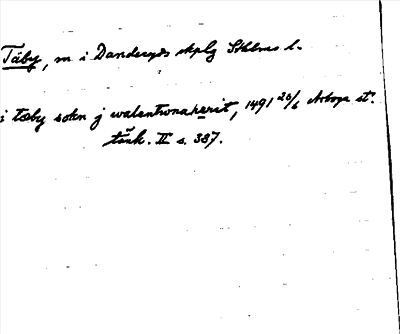 Täby, sn i Danderyds skplg Sthlms l.
i tæby sokn j walentwna herit, 1491 20/6 Arboga st.
tänk. II s. 387.